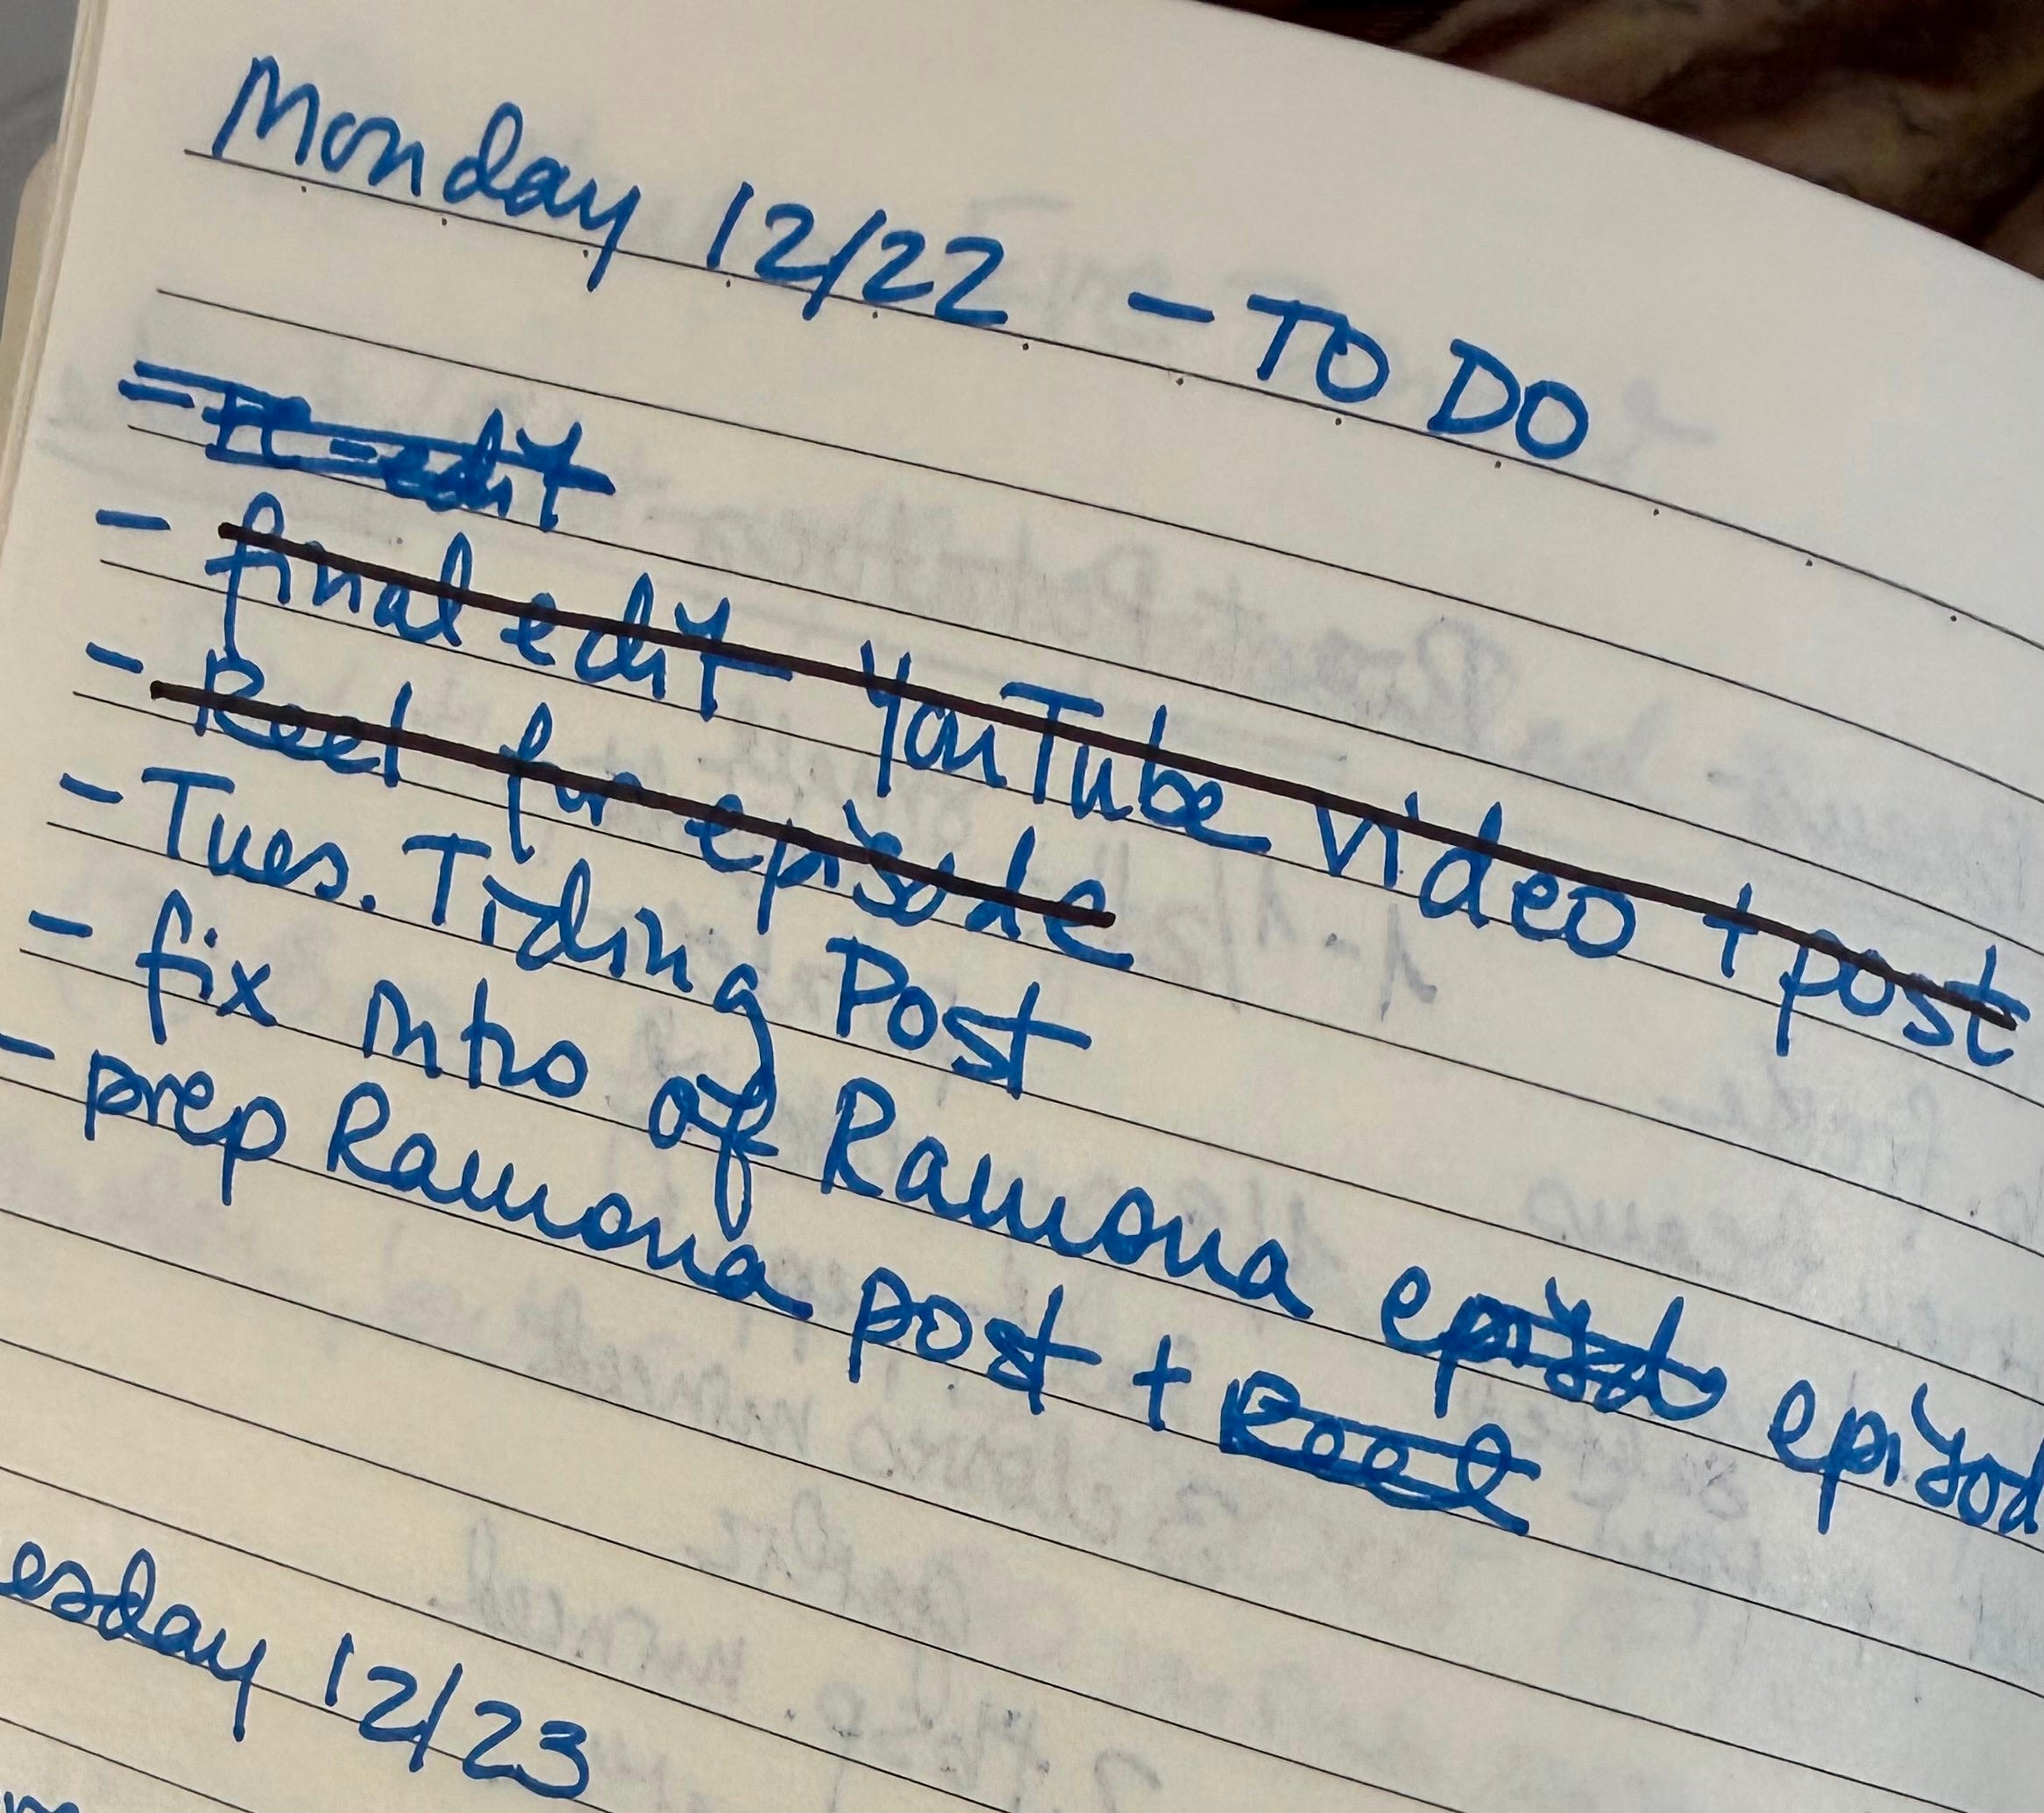 Monday 12/22 - TO DO
- Re-edit
- final edit YouTube video + post
- Reel for episode
- Tues. Tiding Post
- fix intro of Ramona episod episod
- prep Ramona post + Reel
esday 12/23